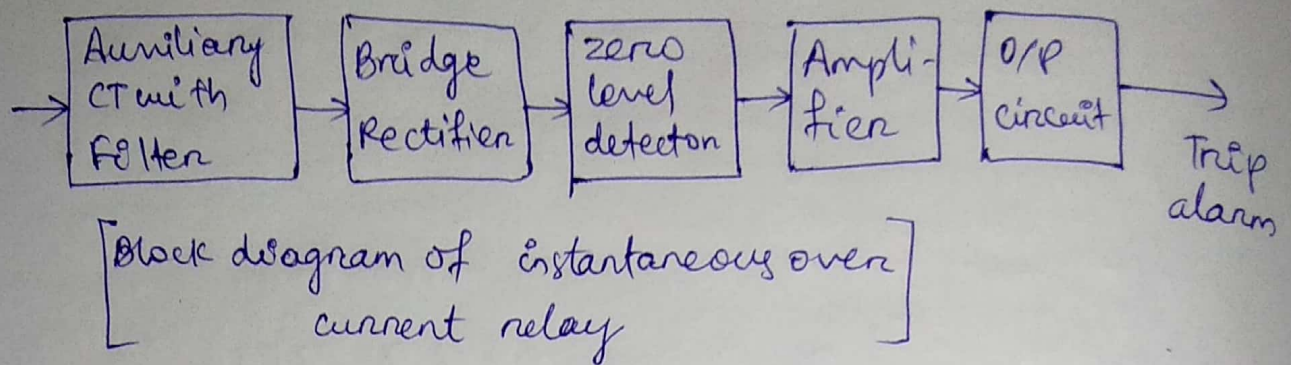 Auxiliary
CT with
Filter
Bridge
Rectifier
zero
level
detector
Ampli-
fier
O/P
circuit
Trip
alarm
[Block diagram of instantaneous over
current relay]